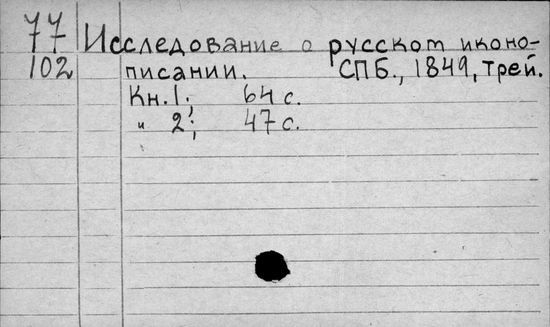 77 Исследование о русском иконо-
102 писании. СПБ., 1849, Трей.
Кн. 1; 64 с.
" 2; 47 с.